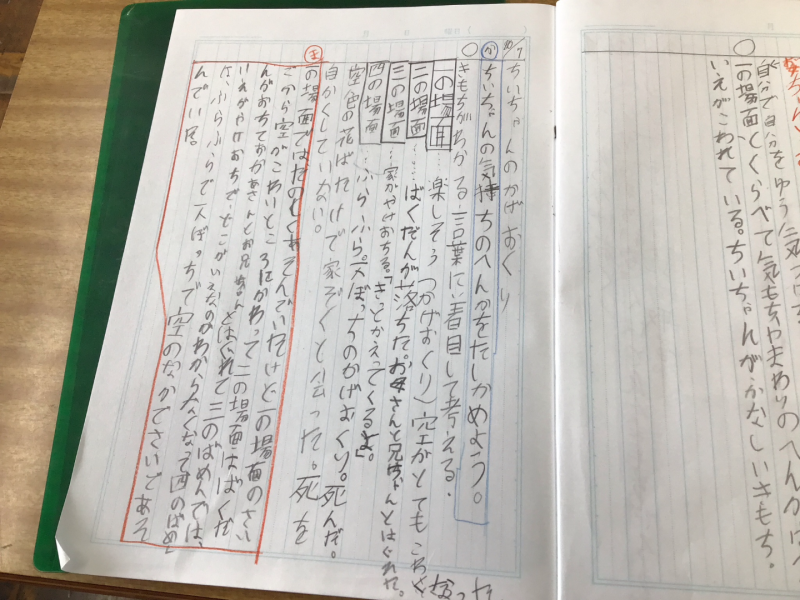 10/7 ちいちゃんのかげおくり
が ちいちゃんの気持ちのへんかをたしかめよう。
○ きもちがわかる言葉に着目して考える。
一の場面…楽しそう(かげおくり)空がとてもこわく
なった
二の場面……ばくだんが落ちた。お母さんと兄ちゃんとはぐれた。
三の場面…家がやけおちる。「きっとかえってくるよ。」
四の場面…ふらふら。一人ぼっちのかげおくり。死んだ。
空色の花ばたけで家ぞくと会った。死を
自かくしていない。
ま 一の場面ではたのしくあそんでいたけど一の場面のさい
ごから空がこわいところにかわって二の場面はばくだ
んがおちておかあさんとお兄ちゃんとはぐれて三のばめんでは、
いえがやけおちて、どこがいえなのかわからなくなって四のばめ
んは、ふらふらで一人ぼっちで空のなかでさいごあそ
んでいた。
自分で自分をゆう気
○
一の場面とくらべて気もちやまわりのへんかは
いえがこわれている。ちいちゃんがかなしいきもち。